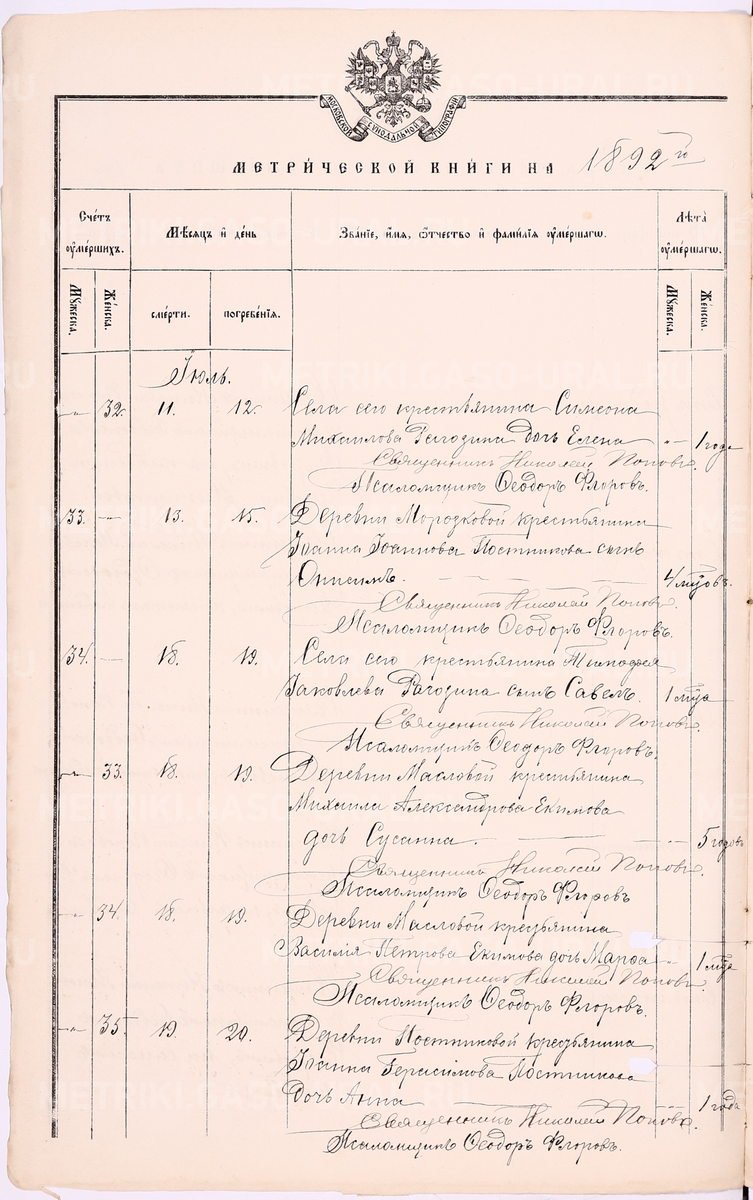 МОСКОВСКОЙ СѴНОДАЛЬНОЙ ТИПОГРАФІИ
МЕТРИ́ЧЕСКОЙ КНИ́ГИ НА 1892й
Сче́тъ ѹ҆ме́ршихъ.
Мѣ́сяцъ и҆ де́нь
Зва́нїе, и҆́мя, ѻ҆́тчество и҆ фами́лїя ѹ҆ме́ршагѡ.
Лѣ́та ѹ҆ме́ршагѡ.
Мꙋ́жеска.
Же́нска.
сме́рти.
погребе́нїя.
Мꙋ́жеска.
Же́нска.
Іюль.
32. 11. 12. Села сего крестьянина Симеона
Михаилова Рагозина дочь Елена 1 года
Священникъ Николай Поповъ.
Псаломщикъ Ѳеодоръ Флоровъ.
33. 13. 15. Деревни Морозковой крестьянина
Іоанна Іоаннова Постникова сынъ
Онисимъ. 4 мцовъ.
Священникъ Николай Поповъ.
Псаломщикъ Ѳеодоръ Флоровъ.
34. 18. 19. Села сего крестьянина Тимоѳея
Іаковлева Рагозина сынъ Савелъ. 1 мца
Священникъ Николай Поповъ.
Псаломщикъ Ѳеодоръ Флоровъ.
33. 18. 19. Деревни Масловой крестьянина
Михаила Александрова Екимова
дочь Сусанна. 5 годовъ
Священникъ Николай Поповъ.
Псаломщикъ Ѳеодоръ Флоровъ
34. 18. 19. Деревни Масловой крестьянина
Василія Петрова Екимова дочь Марѳа 1 мца
Священникъ Николай Поповъ.
Псаломщикъ Ѳеодоръ Флоровъ.
35. 19. 20. Деревни Постниковой крестьянина
Іоанна Герасимова Постникова
дочь Анна 1 года
Священникъ Николай Поповъ.
Псаломщикъ Ѳеодоръ Флоровъ.